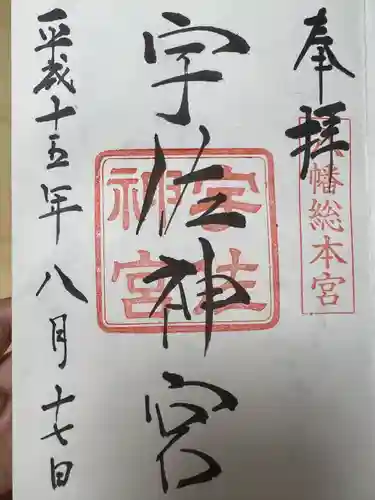 奉拝
八幡総本宮
宇佐神宮
宇佐神宮
平成十五年八月十七日